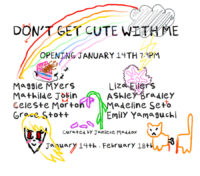 DON'T GET CUTE WITH ME
OPENING JANUARY 14TH 7-9PM
Maggie Myers Liza Eilers
Mathilde Jobin Ashley Bradley
Celeste Morton Madeline Seto
Grace Stott Emily Yamaguchi
Curated by Janiece Maddox
January 14th - February 18th